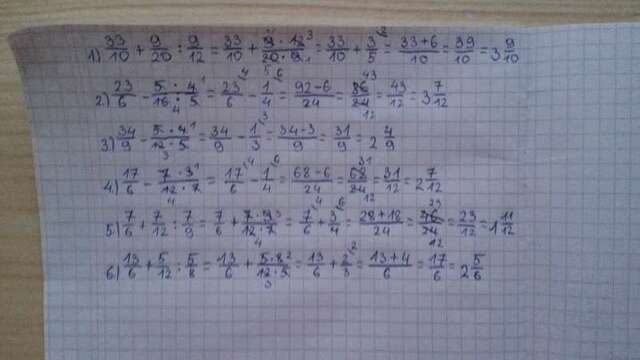 1) 33/10 + 9/20 : 9/12 = 33/10 + 9·12³/20·9₁ = 33/10 + 3/5 ² = 33+6/10 = 39/10 = 3 9/10
2.) 23/6 - 5·4¹/16·5 = 23/6 ⁴ - 1/4 ⁶ = 92-6/24 = 86/24 = 43/12 = 3 7/12
3.) 34/9 - 5·4¹/12·5 = 34/9 - 1/3 ³ = 34-3/9 = 31/9 = 2 4/9
4.) 17/6 - 7·3¹/12·7 = 17/6 ⁴ - 1/4 ⁶ = 68-6/24 = 68/24 = 31/12 = 2 7/12
5.) 7/6 + 7/12 : 7/9 = 7/6 + 7·9³/12·7 = 7/6 ⁴ + 3/4 ⁶ = 28+18/24 = 46/24 = 23/12 = 1 11/12
6.) 13/6 + 5/12 : 5/8 = 13/6 + 5·8²/12·5 = 13/6 + 2/3 ² = 13+4/6 = 17/6 = 2 5/6